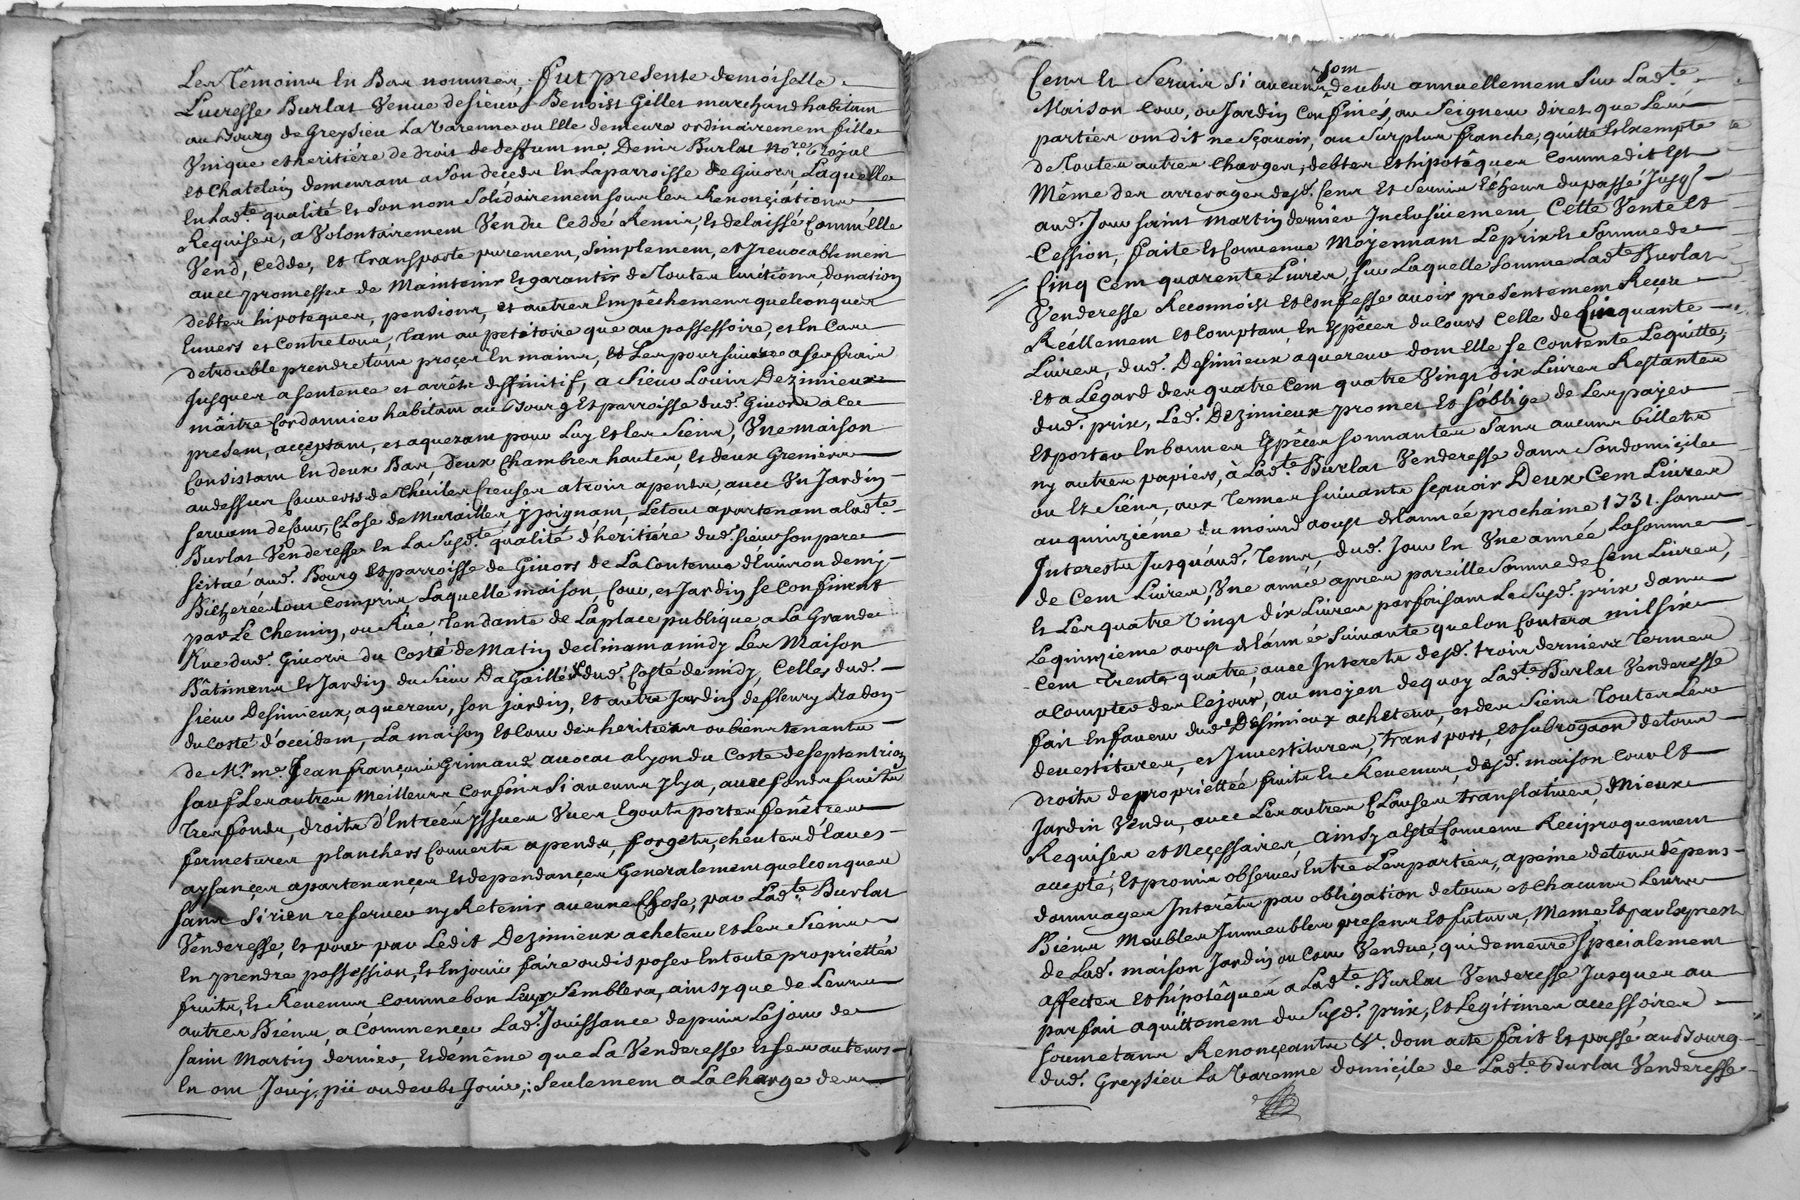 Les Témoins En Bas nommes, fut presente demoiselle
Lucresse Burlat Veuve de sieur Benoist Gilles marchand habitant
au Bourg de Greysieu La Varenne ou Elle demeure ordinairement fille
Unique et heritiére de droit de deffunt me. Denis Burlat Nore. Royal
et Chatelain demeurant a Son deceds En La parroisse de Givors, Laquelle
En Ladte. qualité et Son nom Solidairement sous les Renonciations
Requises, a Volontairement Vendu Ceddé Remis, Et delaissé Comm'Elle
Vend, Cedde, Et Transporte purement, Simplement, et Irevocablement
avec promesse de Maintenir Et garantir de Toutes Evictions, donation
debtes hipoteques, pensions, et autres Empêchements quelconques
Envers et Contre tous, Tant au petitoire que au possessoire, et En Cas
de trouble prendre tous proçes En mains, Et Les poursuivre a ses frais
Jusques a sentence et arrêts deffinitif, a Sieur Louis Dezimieux
mâitre Cordonnier habitant au Bourg Et parroisse dud. Givors a ce
présent, acceptant, et aquerant pour Luy Et les Siens, Une maison
Consistant En deux Bas, deux Chambres hautes, Et deux Greniers
au dessus Couverts de Thuiles Creuses a trois apends, avec Un Jardin
servant de Cour, Close de Murailles y joignant, Le tout apartenant a ladte.
Burlat Venderesse En La Susdte qualité d'heritiére dud. sieur son pere
scitué aud. Bourg Et parroisse de Givors de La Contenue d'Environ demy
Bicherée tout Compris, Laquelle maison, Cour, et Jardin se Confinent
par Le Chemin, ou Rue, Tendante de La place publique a La Grande
Rue dud. Givors du Costé de Matin declinant a midy Les Maison
Bâtiments Et Jardin du Sieur Dagaillé dud. Costé de midy, Celles dud.
sieur Desimieux, aquereur, son jardin, Et autre Jardin de fleury Radon
du Costé d'occident, La maison et Cour des heritiers ou biens tenants
de Mr. me. Jean françois Grimaud avocat a Lyon du Costé de septentrion
sauf Les autres Meilleurs Confins Si aucuns Il y a, avec fonds fruits
Tres fonds, droits d'Entrées Issues Vues Egouts portes fenêtres
fermetures planchers Couverts apends, forgets, cheutes d'Eaues
aysançes apartenançes Et dependançes Generalement quelconques
sans Si rien reserver ny Retenir aucune Chose, par Ladte. Burlat
Venderesse, Et pour par Ledit Dezimieux acheteur Et Les Siens
En prendre possession, Et En jouir faire ou disposer En toute proprietté
fruits, Et Revenus comme bon Luy Semblera, ainsy que de Leurs
autres Biéns, a Commençer Lad. Jouissance depuis Le jour de
saint Martin dernier, Et de même que La Venderesse Et ses auteurs
En ont Jouy, pü ou deubs Jouir; Seulement a La Charge des
Cens Et Servis Si aucuns sont deubs annuellement Sur Ladte.
Maison Cour, ou Jardin Confinés, au Seigneur direct que Les
parties ont dit ne sçavoir, au Surplus franche, quitte Et Exempte
de Toutes autres Charges, debtes Et hipotêques comme dit Est
Même des arrerages desd. Cens Et Servis Echeus du passé Jusq.
aud. Jour Saint Martin dernier Inclusivement, Cette Vente Et
Cession, faite Et Convenue Moyennant Le prix Et Somme de
Cinq Cent quarente Livres, sur Laquelle Somme Ladte Burlat
Venderesse Reconnoist Et Confesse avoir presentement Reçu
Réellement Et Comptant En Espêces du Cours Celle de Cinquante
Livres, dud. Desimieux aquereur dont Elle se Contente Le quitte,
Et a L'egard des quatre Cent quatre Vingt dix Livres Restantes
dud. prix, Led. Dezimieux promet Et s'oblige de Les payer
Et porter En bonnes Espêces sonnantes Sans aucuns billets
ny autres papiers, à Ladte. Burlat Venderesse dans Son domiçile
ou Et Siens, aux Termes suivants sçavoir Deux Cent Livres
au quinziéme du mois d'aoust de l'année prochaine 1731. sans
Interests Jusqu'aud. Tems, dud. Jour En Une année La Somme
de Cent Livres, Une année apres pareille Somme de Cent Livres,
Et Les quatre Vingt dix Livres parfaisant Le Susd. prix dans
Le quinzieme aoust de L'année Suivante que Lon Contera mil six
Cent Trente quatre; avec Interets desd. trois derniers Termes
a Compter des Ce jour, au moyen de quoy Ladte Burlat Venderesse
fait En faveur dud. Desimieux acheteur, et des Siens Toutes Les
devestitures, et Investitures, transport, Et subrogaon de tous
droits de propriettée fruits Et Revenus, desd. maison Cour Et
Jardin Vendu, avec Les autres Clauses translatives, d'Mieux
Requises et Neçessaires, ainsy a Esté Convenu Reciproquement
accepté, Et promis observer Entre Les parties, a peine de tous dépens
dommages Interêts par obligation de tous et Chacuns Leurs
Biéns Meubles Immeubles presens Et futurs, Meme, Et par Expres
de Lad. maison Jardin ou Cour Vendue, qui demeure spécialement
affectes Et hipotêques a Ladte. Burlat Venderesse Jusques au
parfait aquittement du Susd. prix, Et Legitimes accessoires
Soumetans Renonçants &. dont acte fait Et passé au Bourg
dud. Greysieu La Varenne domiçile de Ladte. Burlat Venderesse